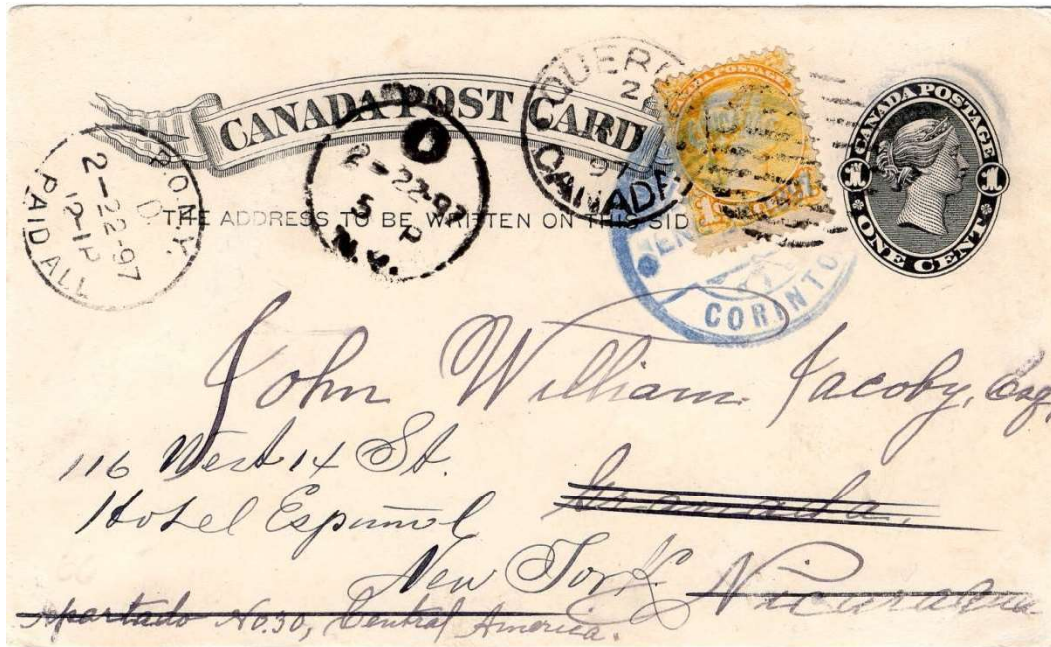 CANADA POST CARD
THE ADDRESS TO BE WRITTEN ON THIS SID
CANADA POSTAGE
1 1
ONE CENT
CANADA POSTAGE
QUEBE
2
97
CANADA
P.O. N.Y.
D
2-22-97
12-1P
PAID ALL
O
2-22-97
5 P
N.Y.
CORINTO
John William Jacoby, Esq
116 West 14 St.
Hotel Español
Granada,
New York
Nicaragua
Apartado No. 30, Central America.